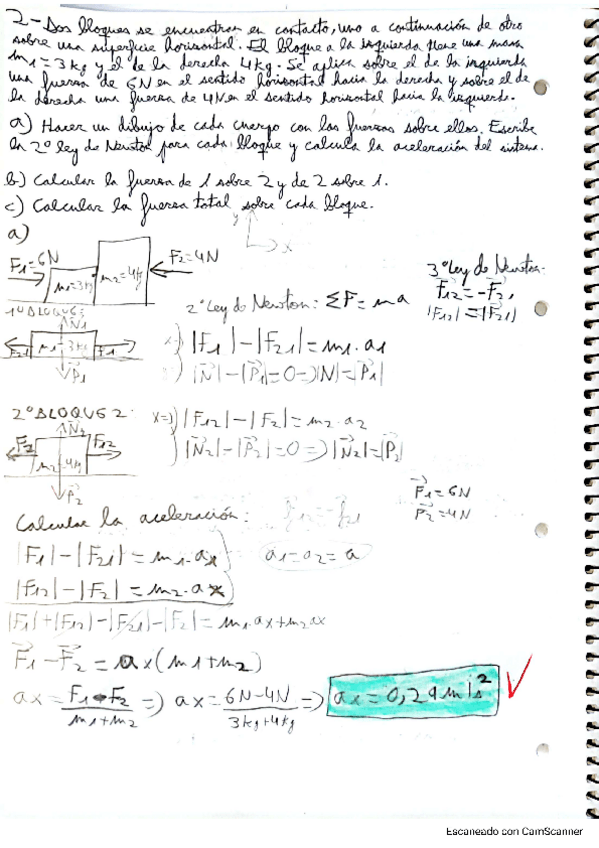 2- Dos bloques se encuentran en contacto, uno a continuación de otro
sobre una superficie horisontal. El bloque a la izquierda tiene una masa
m1=3kg y el de la derecha 4kg. Se aplica sobre el de la izquierda
una fuerza de 6N en el sentido horisontal hacia la derecha y sobre el de
la derecha una fuerza de 4N en el sentido horisontal hacia la izquierda.
a) Hacer un dibujo de cada cuerpo con las fuerzas sobre ellos. Escribe
la 2º ley de Newton para cada bloque y calcula la aceleración del sistema.
b) Calcular la fuerza de 1 sobre 2 y de 2 sobre 1.
c) Calcular la fuerza total sobre cada bloque.
y
x
a)
F1=6N
m1=3kg
m2=4kg
F2=4N
3º Ley de Newton.
F12=-F2,
|F12|=|F21|
2º Ley de Newton: ΣF=ma
1º BLOQUE:
N1
F21
m1=3kg
F1
P1
|F1|-|F21|=m1.a1
|N|-|P1|=0=>|N|=|P1|
2º BLOQUE 2:
N2
F2
F12
m2=4kg
P2
x=>)|F12|-|F2|=m2.a2
)|N2|-|P2|=0=>|N2|=|P2|
F1=6N
F2=4N
Calcular la aceleración:
|F1|-|F21|=m1.ax
a1=a2=a
|F12|-|F2|=m2.ax
|F1|+|F12|-|F21|-|F2|=m1.ax+m2ax
F1-F2=ax(m1+m2)
ax=F1-F2/m1+m2 => ax=6N-4N/3kg+4kg => ax=0,29m/s²
Escaneado con CamScanner